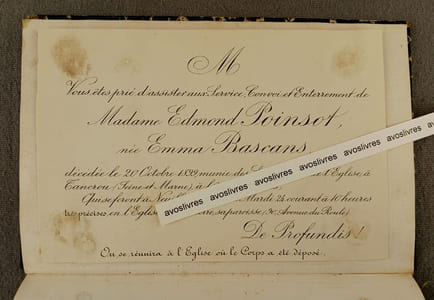 M
Vous êtes prié d'assister aux Service, Convoi et Enterrement de
Madame Edmond Poinsot,
née Emma Bascans,
décédée le 20 Octobre 1899, munie des de l'Eglise, à
Tancrou (Seine et Marne), à
Qui se feront à Mardi 24 courant à 10 heures
très précises, en l'Eglise sa paroisse (90 Avenue du Roule)
De Profundis!
On se réunira à l'Eglise où le Corps a été déposé.
avoslivres avoslivres avoslivres avoslivres avoslivres